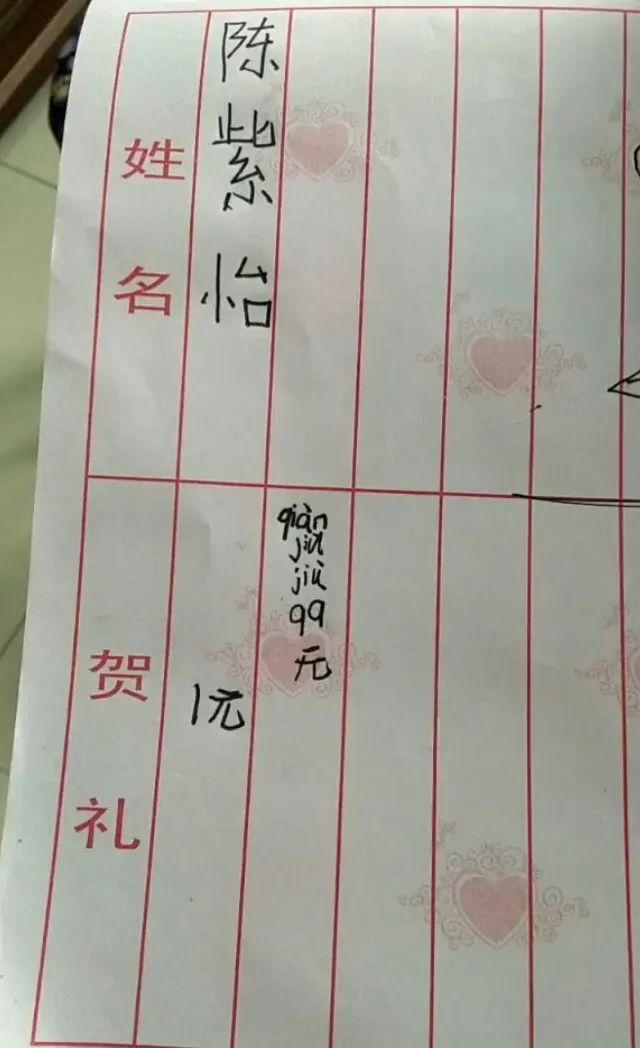 姓名
陈紫怡
贺礼
1元
qiàn
jiù
jiù
99
元